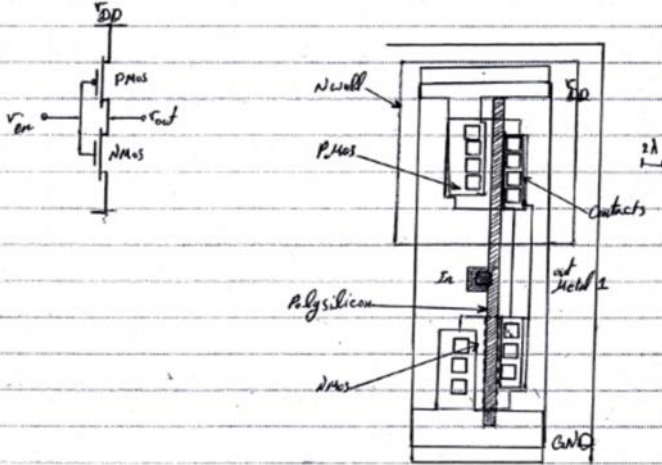 VDD
PMOS
Vin
Vout
NMOS
N well
VDD
PMOS
2λ
Contacts
In
out
Metal 1
Polysilicon
NMOS
GND